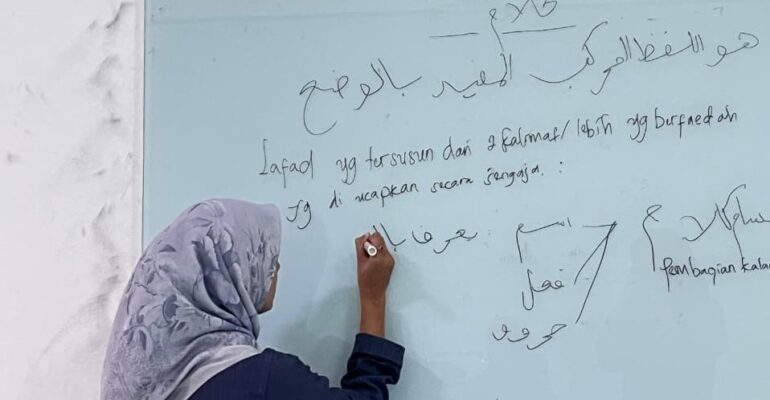 كلام
هو اللفظ المركب المفيد بالوضع
Lafad yg tersusun dari 2 kalimat/lebih yg berfaedah
yg di ucapkan secara sengaja. :
سام كلام
pembagian kalam
اسم : يعرف بال
فعل
حروف